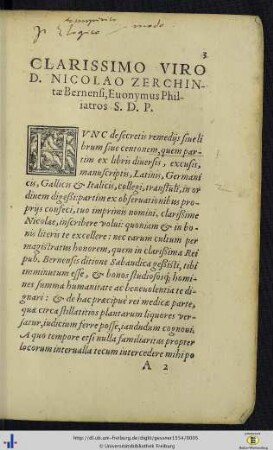 3
CLARISSIMO VIRO
D. NICOLAO ZERCHIN-
tæ Bernensi, Euonymus Phil-
iatros S. D. P.
HVNC de secretis remedijs siue li
brum siue centonem, quem par-
tim ex libris diuersis, excusis,
manuscriptis, Latinis, Germani
cis, Gallicis & Italicis, collegi, transtuli, in or
dinem digessi: partim ex obseruationibus pro-
prijs confeci, tuo imprimis nomini, clarissime
Nicolae, inscribere volui: quoniam & in bo-
nis literis te excellere: nec earum cultum per
magistratus honorem, quem in clarissima Rei
pub. Bernensis ditione Sabaudica gessisti, tibi
imminutum esse, & bonos studiososq; homi-
nes summa humanitate ac beneuolentia te di-
gnari: & de hac præcipuè rei medicæ parte,
quæ circa stillatitios plantarum liquores ver-
satur, iudicium ferre posse, iandudum cognoui.
A quo tempore etsi nulla familiaritas propter
locorum interualla tecum intercedere mihi po
A 2
http://dl.ub.uni-freiburg.de/diglit/gessner1554/0005
© Universitätsbibliothek Freiburg